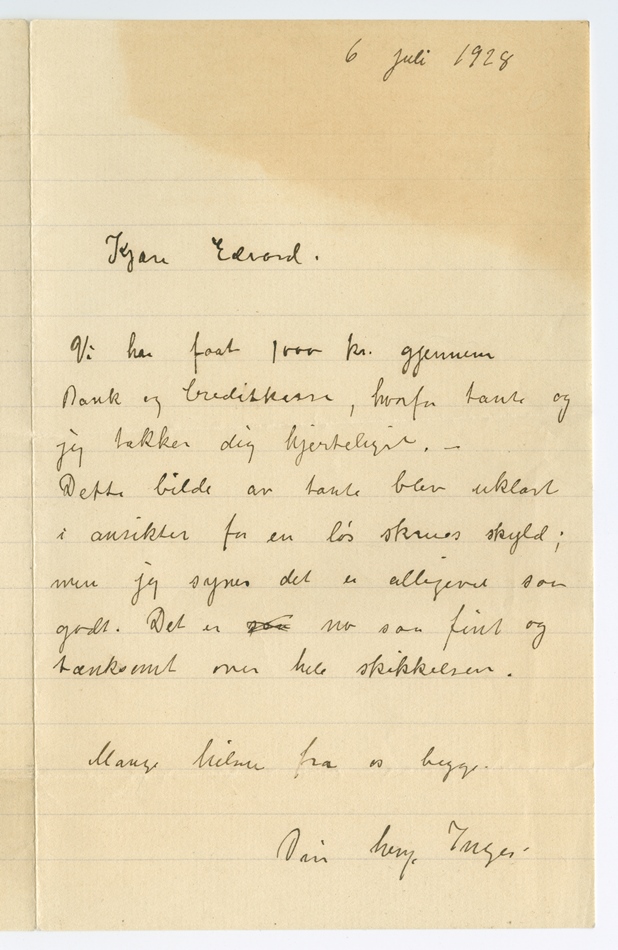 6 juli 1928
Kjære Edvard.
Vi har faat 1000 kr. gjennem
Bank og Creditkasse, hvorfor tante og
jeg takker dig hjerteligst. –
Dette bilde av tante blev uklart
i ansiktet for en løs skrues skyld;
men jeg synes det er alligevel saa
godt. Det er no saa fint og
tænksomt over hele skikkelsen.
Mange hilsner fra os begge.
Din heng. Inger.